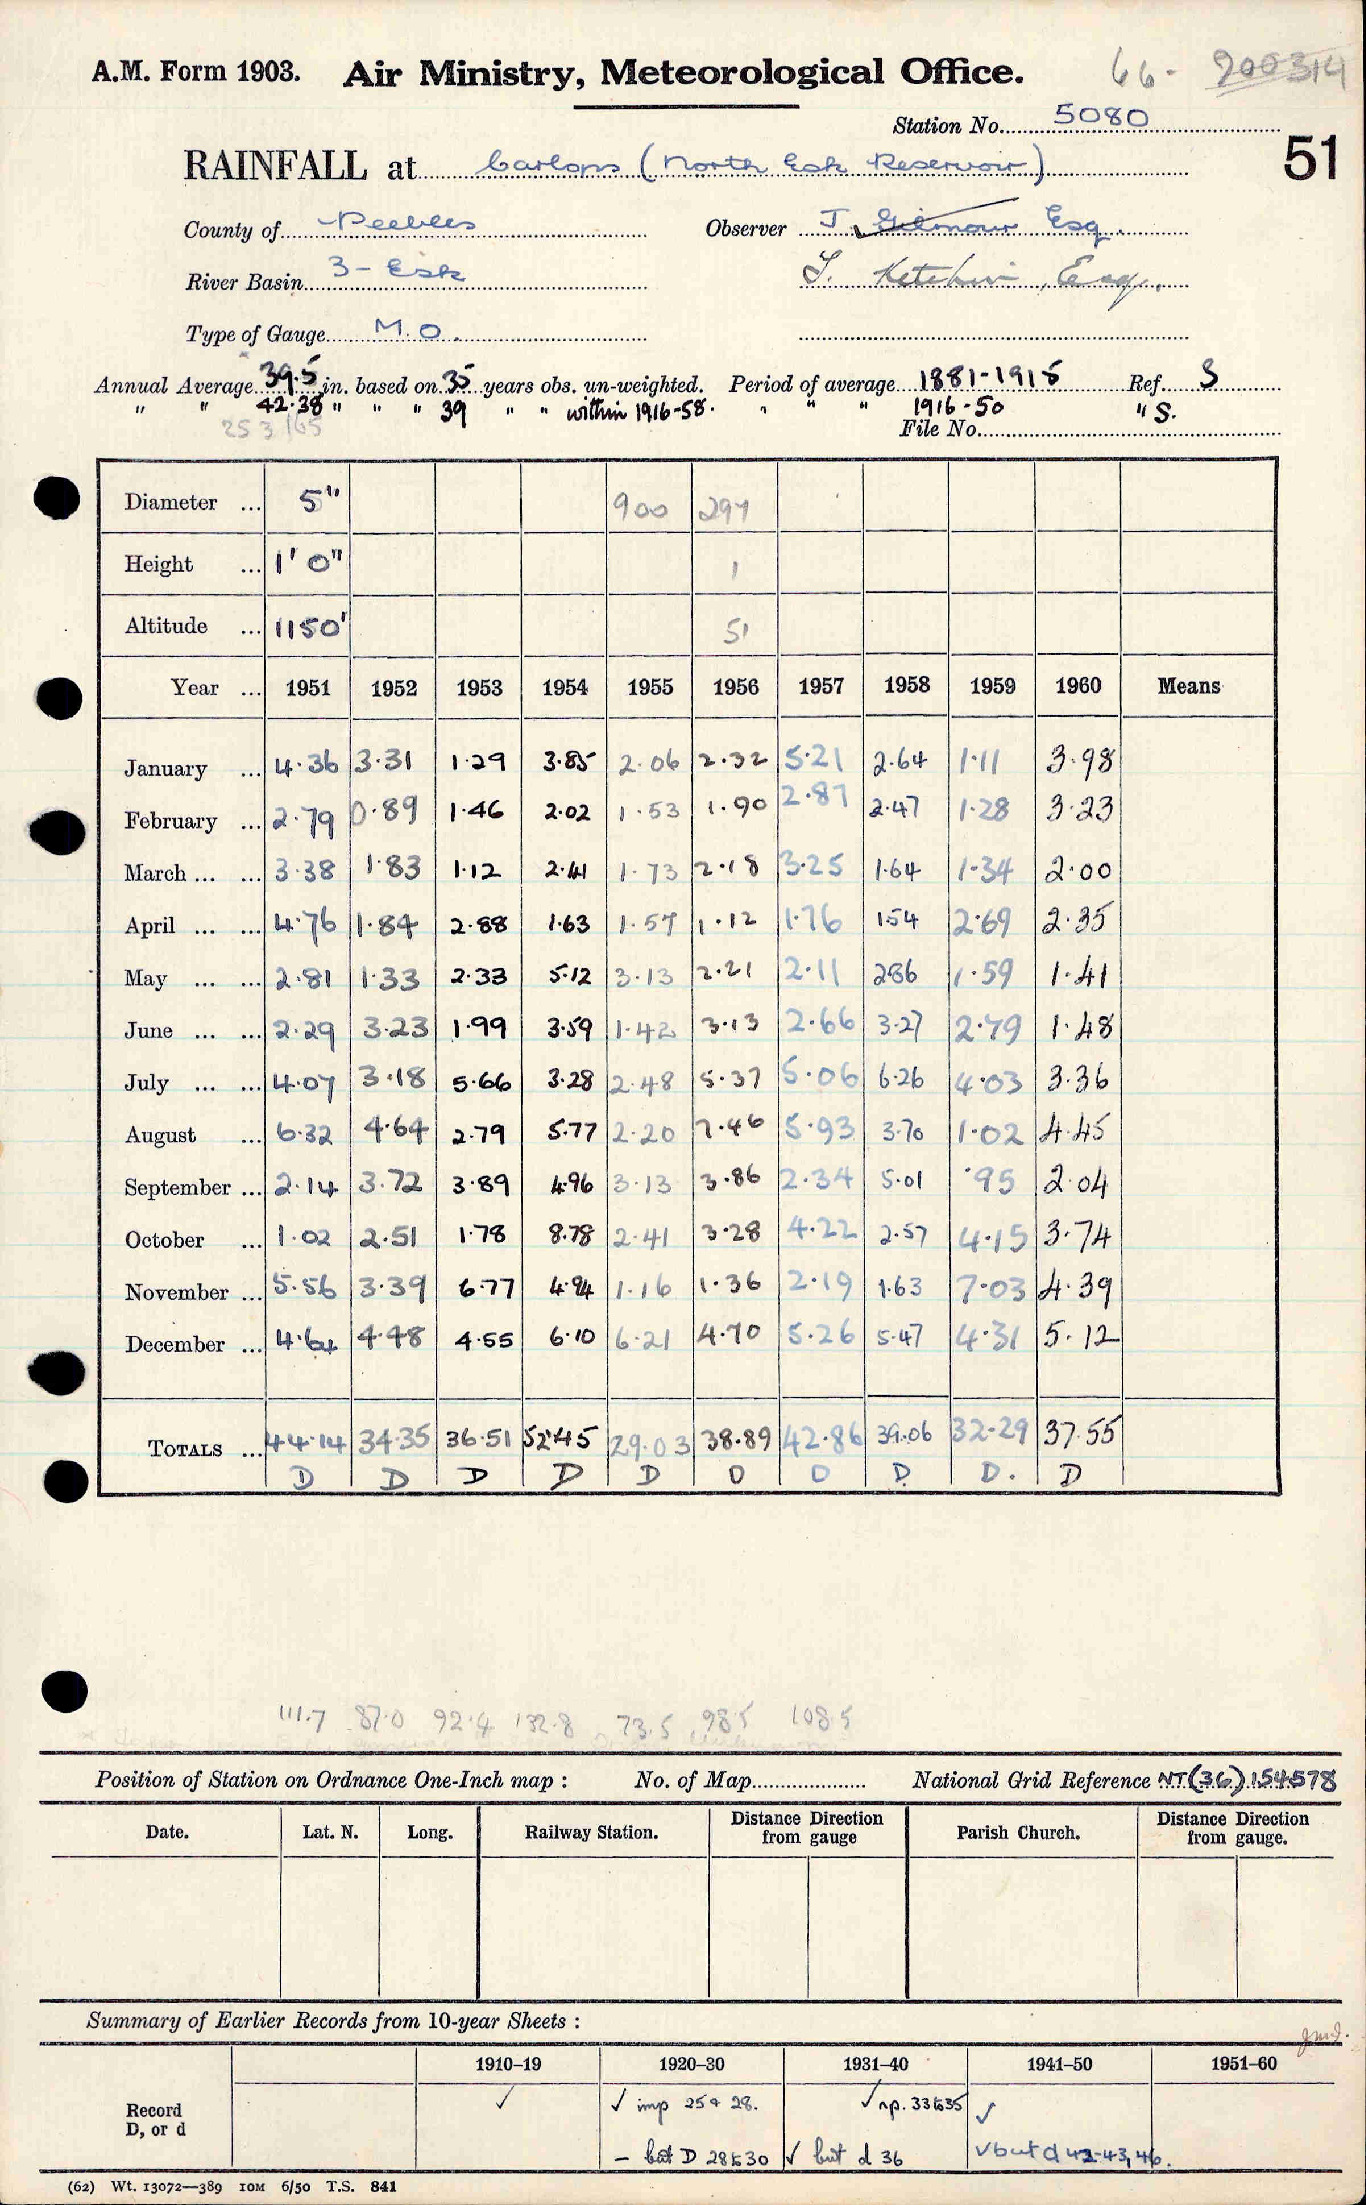 A.M. Form 1903. Air Ministry, Meteorological Office. 66- 200314
Station No. 5080
51
RAINFALL at Carlops (North Esk Reservoir)
County of Peebles Observer J. Gilmour Esq.
River Basin 3 - Esk T. Ketchin, Esq.
Type of Gauge M.O.
Annual Average 39.5 in. based on 35 years obs. un-weighted. Period of average 1881-1915 Ref. S
" " 42.38 " " " 39 " " within 1916-58. " " " 1916-50 " S.
253/65 File No.
Diameter ... 5" 900 297
Height ... 1' 0" 1
Altitude ... 1150' 51
Year ... 1951 1952 1953 1954 1955 1956 1957 1958 1959 1960 Means
January ... 4.36 3.31 1.29 3.85 2.06 2.32 5.21 2.64 1.11 3.98
February ... 2.79 0.89 1.46 2.02 1.53 1.90 2.87 2.47 1.28 3.23
March ... ... 3.38 1.83 1.12 2.41 1.73 2.18 3.25 1.64 1.34 2.00
April ... ... 4.76 1.84 2.88 1.63 1.57 1.12 1.76 1.54 2.69 2.35
May ... ... 2.81 1.33 2.33 5.12 3.13 2.21 2.11 2.86 1.59 1.41
June ... ... 2.29 3.23 1.99 3.59 1.42 3.13 2.66 3.27 2.79 1.48
July ... ... 4.07 3.18 5.66 3.28 2.48 5.37 5.06 6.26 4.03 3.36
August ... 6.32 4.64 2.79 5.77 2.20 7.46 5.93 3.70 1.02 4.45
September ... 2.14 3.72 3.89 4.96 3.13 3.86 2.34 5.01 .95 2.04
October ... 1.02 2.51 1.78 8.78 2.41 3.28 4.22 2.57 4.15 3.74
November ... 5.56 3.39 6.77 4.94 1.16 1.36 2.19 1.63 7.03 4.39
December ... 4.64 4.48 4.55 6.10 6.21 4.70 5.26 5.47 4.31 5.12
TOTALS ... 44.14 34.35 36.51 52.45 29.03 38.89 42.86 39.06 32.29 37.55
D D D D D D D D D. D
111.7 87.0 92.4 132.8 73.5 98.5 108.5
Position of Station on Ordnance One-Inch map : No. of Map National Grid Reference NT(36)154578
Date. Lat. N. Long. Railway Station. Distance Direction from gauge Parish Church. Distance Direction from gauge.
Summary of Earlier Records from 10-year Sheets :
1910–19 1920–30 1931–40 1941–50 1951–60
Record ✓ ✓ imp 25 & 28. ✓ np. 33to35 ✓
D, or d – but D 28to30 ✓ but d 36 ✓ but d 42-43, 46.
(62) Wt. 13072—389 IOM 6/50 T.S. 841